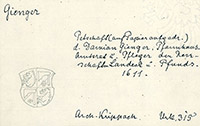 Gienger
Petschaft (auf Papier aufgedr.)
d. Damian Gienger, Pfannhaus-
amtsrat u. Pfleger der Herr-
schaft Landeck u. Pfunds.
1611.
Arch. Künigl Urk. 315